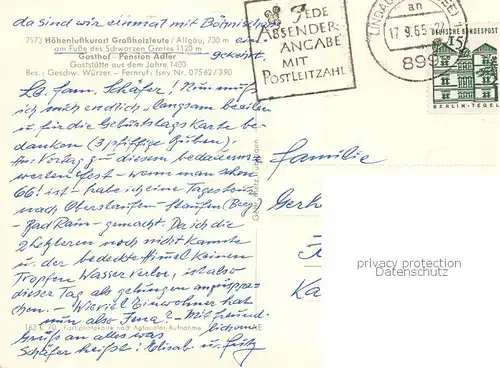 da sind wir einmal mit Böhnisch
7573 Höhenluftkurort Großholzleute / Allgäu, 730 m
am Fuße des Schwarzen Grates 1120 m
Gasthof - Pension Adler
gekehrt.
Gaststätte aus dem Jahre 1403
Bes.: Geschw. Würzer - Fernruf: Isny Nr. 07562/390
Lb. Fam. Schäfer! Nun muß
ich mich endlich "langsam beeilen
u. für die Geburtstags Karte be-
danken (3 pfiffige Buben).
Am Vortag zu diesem bedauerns-
werten Fest - wenn man schon
66! ist - habe ich eine Tagestour
nach Oberstaufen - Staufen (Berg)
- Bad Rain - gemacht. Da ich die
2 Letzteren noch nicht kannte
u. der bedeckte Himmel keinen
Tropfen Wasser verlor, ist also
dieser Tag als gelungen anzuspre-
chen. - Wieviel Einwohner hat
nun also Jena? - Mit freund-
163 C 70 Farbphotokarte nach Agfacolor-Aufnahme
lichem
Gruß an alles was
Schäfer heißt! Elisab. u. Fritz
JEDE
ABSENDER-
ANGABE
MIT
POSTLEITZAHL
an
17.9.65
899
DEUTSCHE BUNDESPOST
15
BERLIN-TEGEL
Familie
Gerh
Ka
privacy protection
Datenschutz